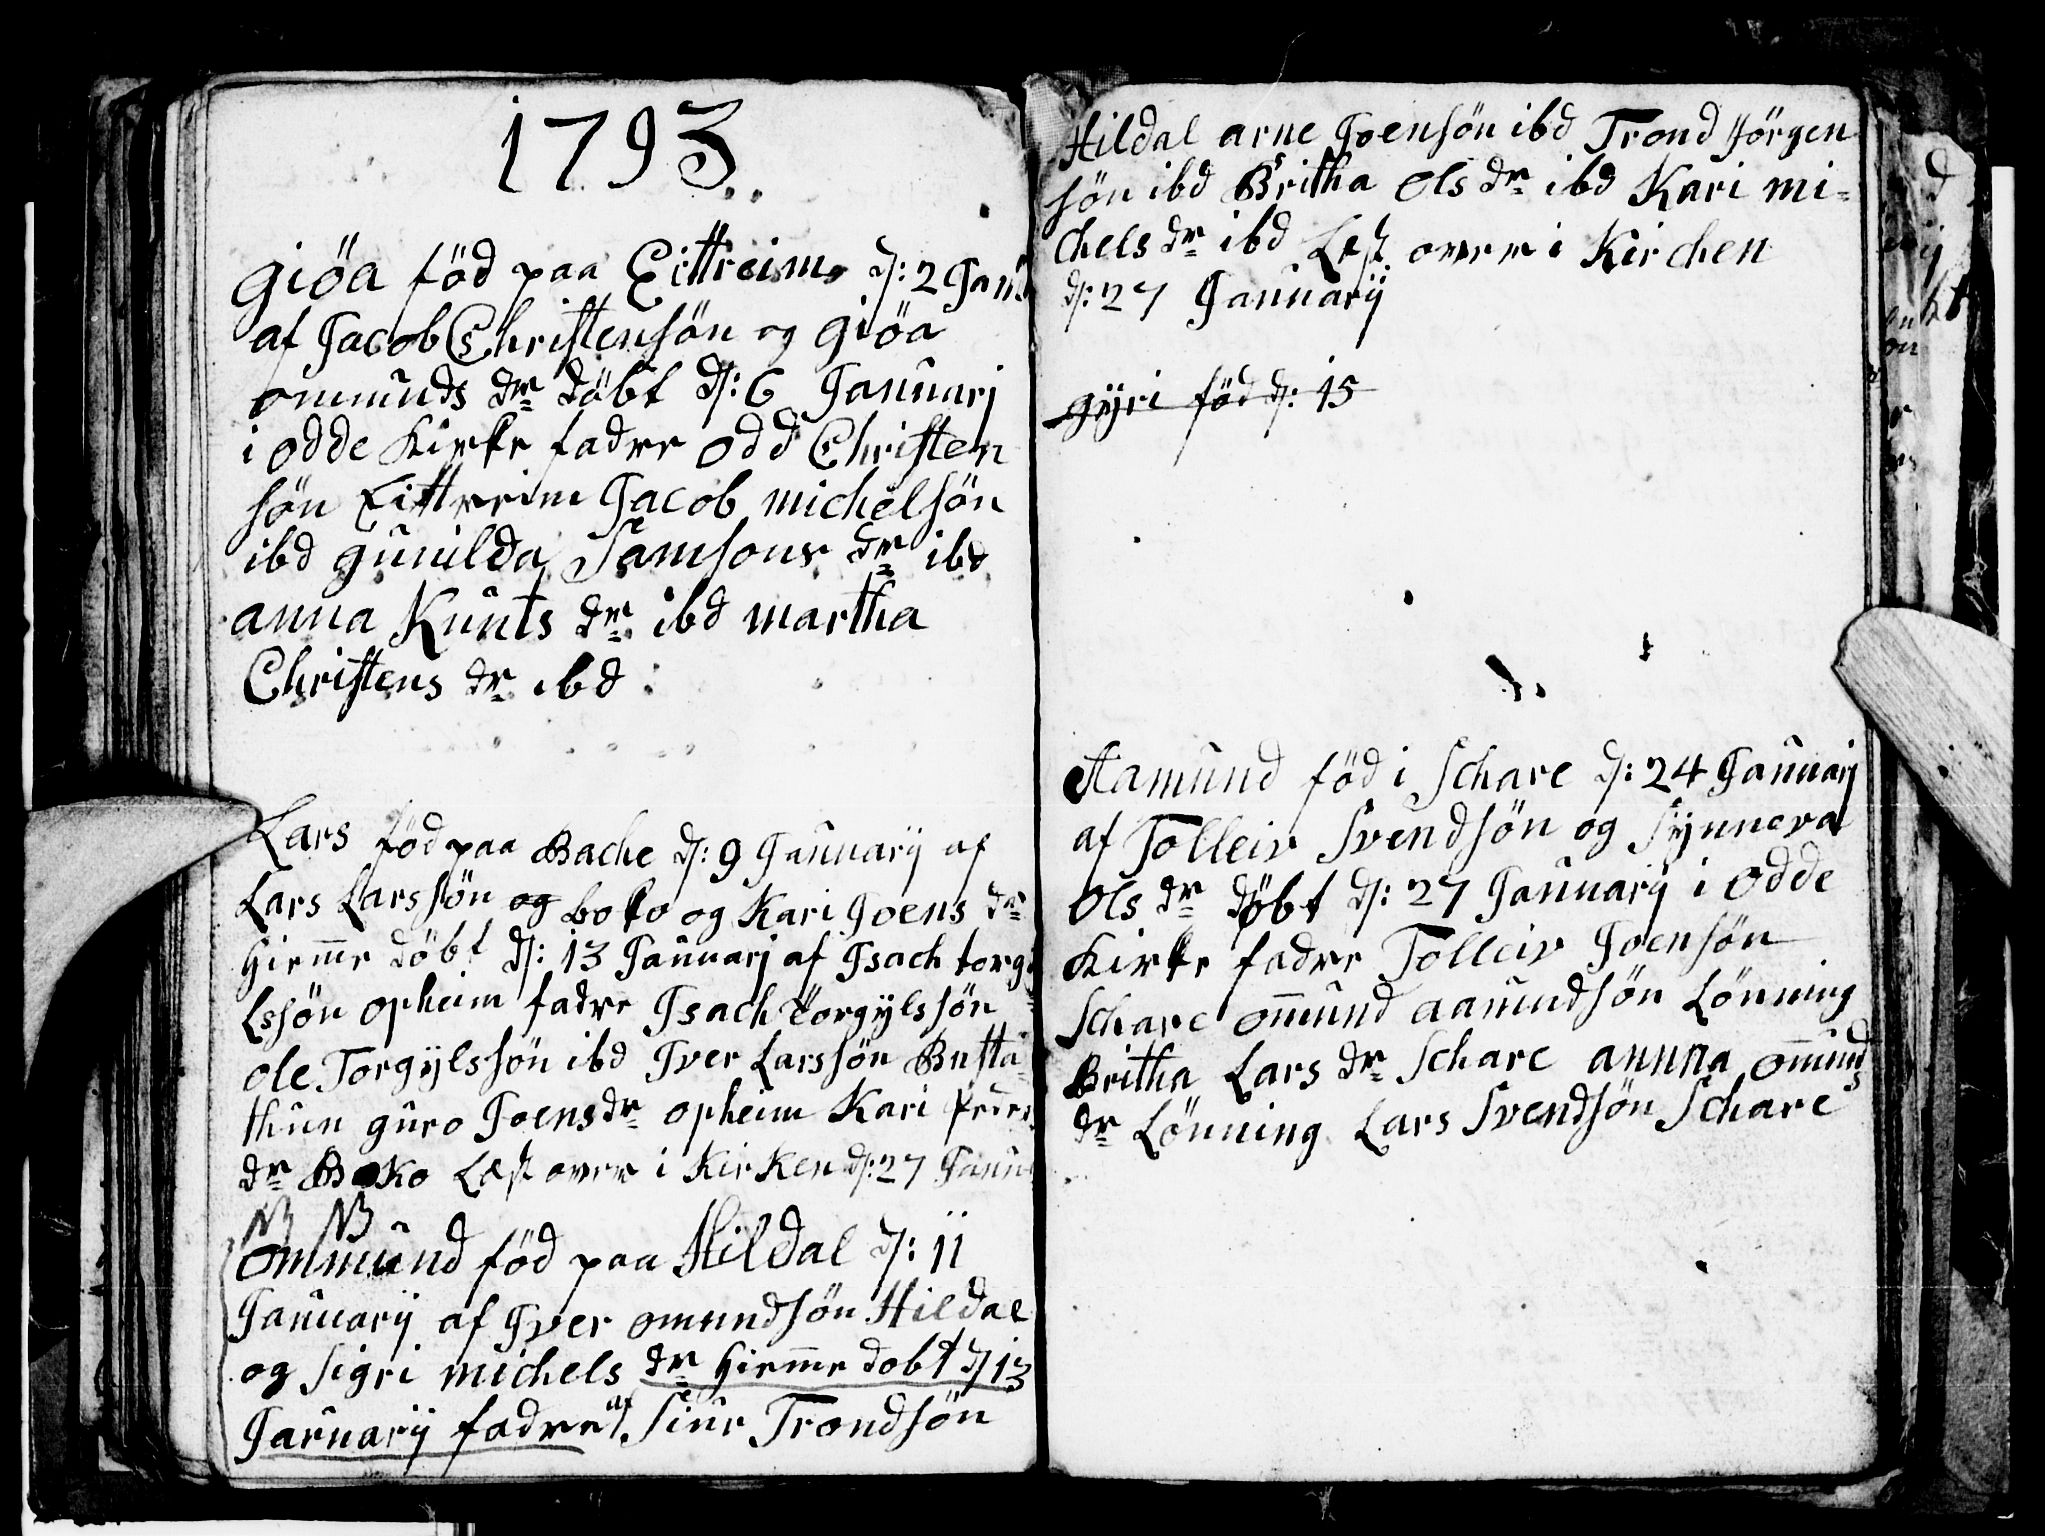 1793
giöa föd paa Eittreim d: 2 Janu
af Jacob Christensön og giöa
ommunds dr döbt d: 6 Januarj
i odde Kirke fadre odd Christen
sön Eittreim Jacob michelsön
ibd gunilda Samsons dr ibd
anna Kunts dr ibd martha
Christens dr ibd
Lars föd paa Bache d: 9 Januarij af
Lars Larssön og boko og Kari Joens dr
hiem̅e döbt d: 13 Januarj af Isach torgi
lssön opheim fadre Isach torgÿlssön
ole Torgÿlssön ibd Iver Larssön Busta
thun guro Joensdr opheim Kari Peders
dr Boko Læst over i Kirken d: 27 Janu
NB NB
ommund föd paa Hildal d: 11
Januarij af Iver omundsön Hildal
og Sigri michels dr hiem̅e dobt d 13
Januarij fadre af Siur Trondsön
Hildal arne Joensön ibd Trond Jörgen
sön ibd Britha Ols dr ibd Kari mi=
chels dr ibd Læst over i Kirchen
d: 27 Januarij
gÿri föd d: 15
Aamund föd i Schare d: 24 Januarj
af Tolleiv Svendsön og Sÿnneva
Ols dr döbt d: 27 Januarij i Odde
Kirke fadre Tolleiv Joensön
Schare om̅und aamundsön Lönning
Britha Lars dr Schare annna om̅unds
dr Lönning Lars Svendsön Schare